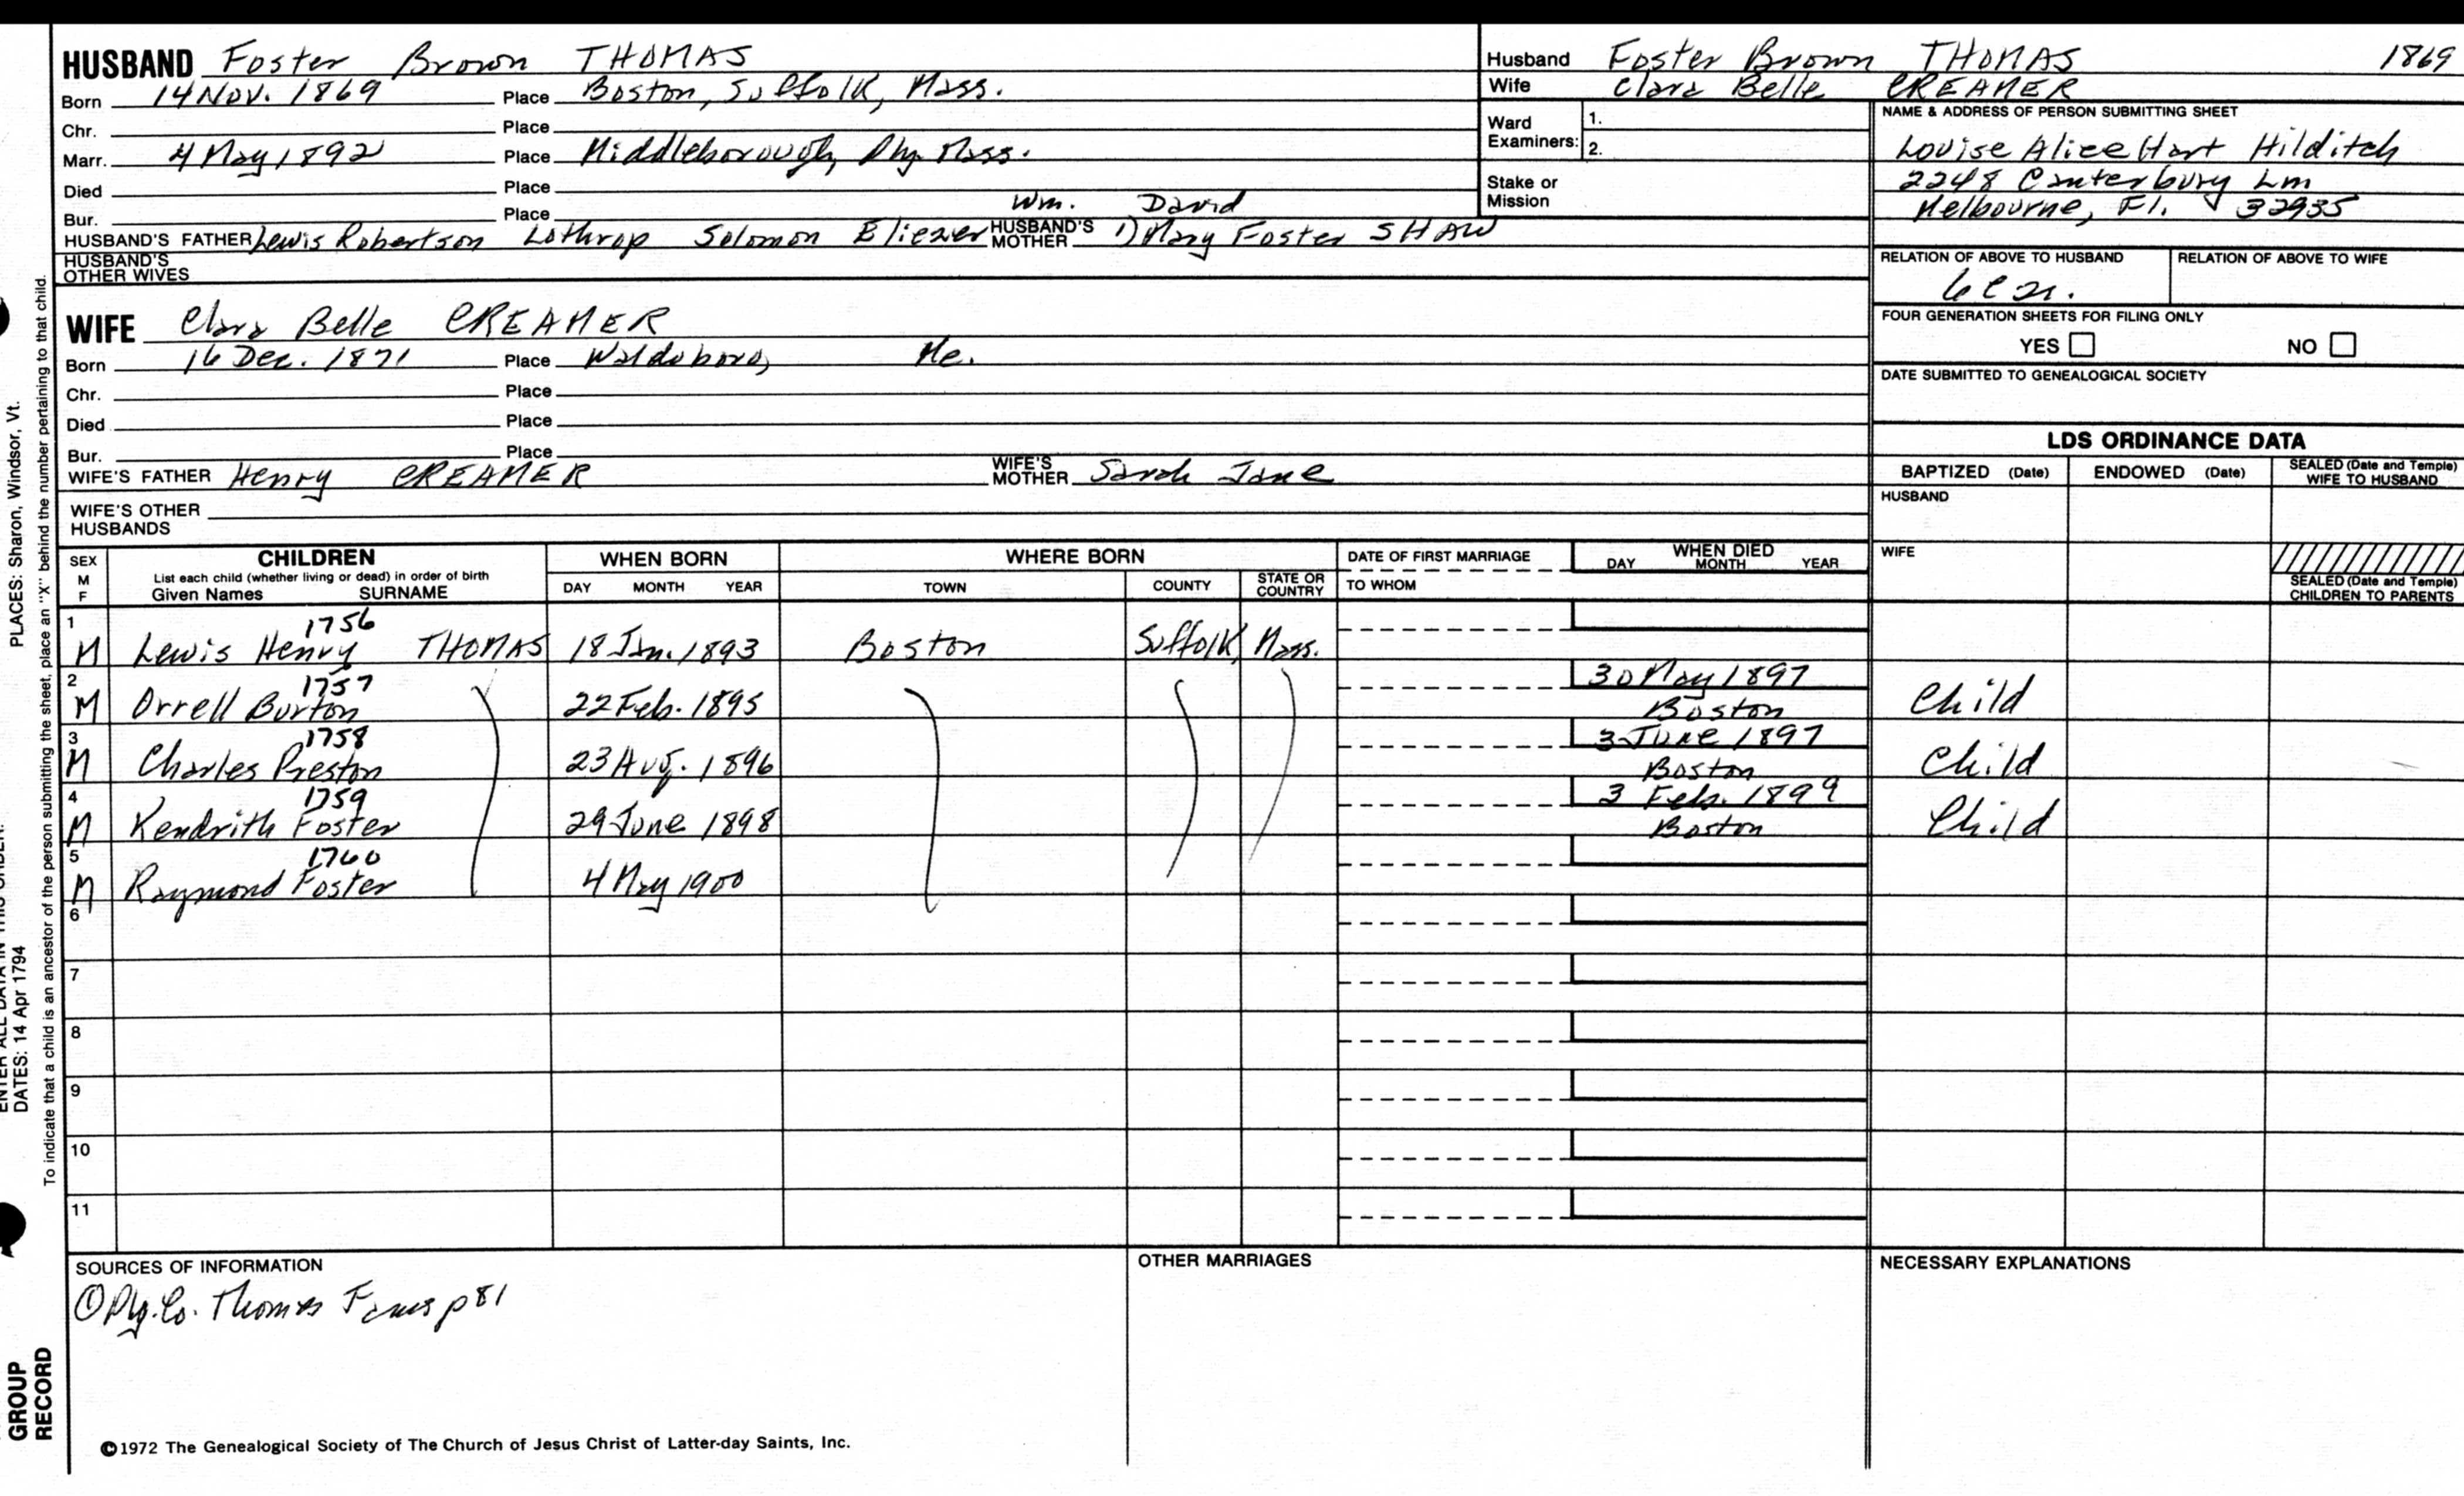 HUSBAND Foster Brown THOMAS
Born 14 Nov. 1869 Place Boston, Suffolk, Mass.
Chr. Place
Marr. 4 May 1892 Place Middleborough, Ply. Mass.
Died Place
Bur. Place
Wm. David
HUSBAND'S FATHER Lewis Robertson Lothrop Solomon Eliezer HUSBAND'S MOTHER 1) Mary Foster SHAW
HUSBAND'S OTHER WIVES
WIFE Clara Belle CREAMER
Born 16 Dec. 1871 Place Waldoboro, Me.
Chr. Place
Died Place
Bur. Place
WIFE'S FATHER Henry CREAMER WIFE'S MOTHER Sarah Jane
WIFE'S OTHER HUSBANDS
Husband Foster Brown THOMAS 1869
Wife Clara Belle CREAMER
Ward Examiners: 1.
2.
Stake or Mission
NAME & ADDRESS OF PERSON SUBMITTING SHEET
Louise Alice Hart Hilditch
2248 Canterbury Ln
Melbourne, Fl. 32935
RELATION OF ABOVE TO HUSBAND RELATION OF ABOVE TO WIFE
FOUR GENERATION SHEETS FOR FILING ONLY
YES NO
DATE SUBMITTED TO GENEALOGICAL SOCIETY
LDS ORDINANCE DATA
BAPTIZED (Date) ENDOWED (Date) SEALED (Date and Temple) WIFE TO HUSBAND
HUSBAND
WIFE
SEALED (Date and Temple) CHILDREN TO PARENTS
SEX M F CHILDREN WHEN BORN WHERE BORN DATE OF FIRST MARRIAGE WHEN DIED
List each child (whether living or dead) in order of birth
Given Names SURNAME DAY MONTH YEAR TOWN COUNTY STATE OR COUNTRY TO WHOM DAY MONTH YEAR
1 1756
M Lewis Henry THOMAS 18 Jan. 1893 Boston Suffolk, Mass.
2 1757 30 May 1897
M Orrell Burton 22 Feb. 1895 Boston Child
3 1758 3 June 1897
M Charles Preston 23 Aug. 1896 Boston Child
4 1759 3 Feb. 1899
M Kendrith Foster 29 June 1898 Boston Child
5 1760
M Raymond Foster 4 May 1900
6
7
8
9
10
11
SOURCES OF INFORMATION
① Ply. Co. Thomas Fams p 81
OTHER MARRIAGES
NECESSARY EXPLANATIONS
©1972 The Genealogical Society of The Church of Jesus Christ of Latter-day Saints, Inc.
PLACES: Sharon, Windsor, Vt.
DATES: 14 Apr 1794
To indicate that a child is an ancestor of the person submitting the sheet, place an "X" behind the number pertaining to that child.
GROUP
RECORD